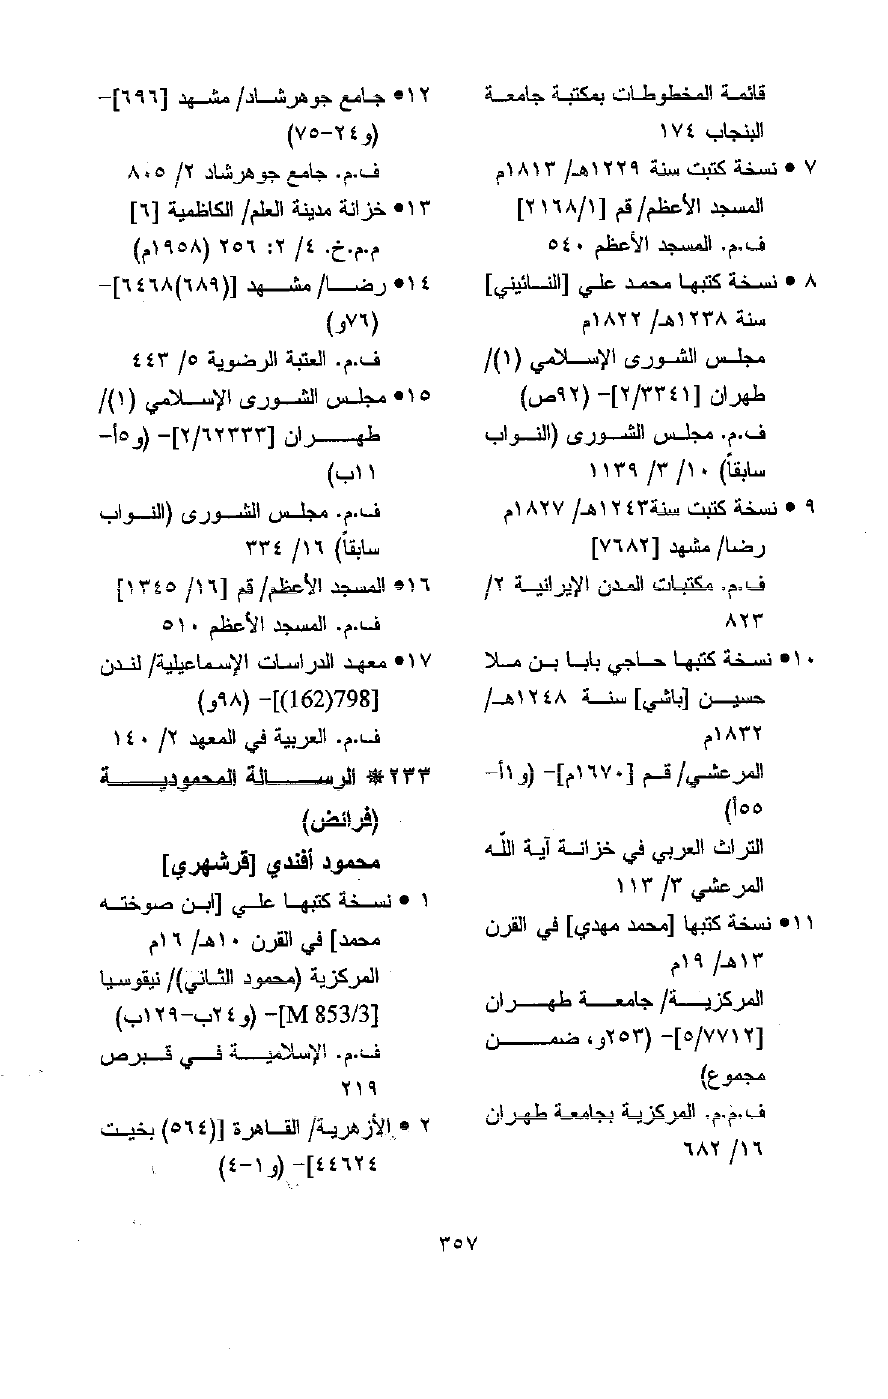 قائمة المخطوطات بمكتبة جامعة
البنجاب ١٧٤
٧ • نسخة كتبت سنة ١٢٢٩هـ/ ١٨١٣م
المسجد الأعظم/ قم [٢١٦٨/١]
ف.م. المسجد الأعظم ٥٤٠
٨ • نسخة كتبها محمد علي [النائيني]
سنة ١٢٣٨هـ/ ١٨٢٢م
مجلس الشورى الإسلامي (١)/
طهران [٢/٣٣٤١]- (٩٢ص)
ف.م. مجلس الشورى (النواب
سابقاً) ١٠/ ٣/ ١١٣٩
٩ • نسخة كتبت سنة١٢٤٣هـ/ ١٨٢٧م
رضا/ مشهد [٧٦٨٢]
ف.م. مكتبات المدن الإيرانية ٢/
٨٢٣
١٠• نسخة كتبها حاجي بابا بن ملا
حسين [باشي] سنة ١٢٤٨هـ/
١٨٣٢م
المرعشي/ قم [١٦٧٠م]- (و١أ-
٥٥أ)
التراث العربي في خزانة آية الله
المرعشي ٣/ ١١٣
١١• نسخة كتبها [محمد مهدي] في القرن
١٣هـ/ ١٩م
المركزية/ جامعة طهران
[٥/٧٧١٢]- (٢٥٣و، ضمن
مجموع)
ف.م.م. المركزية بجامعة طهران
١٦/ ٦٨٢
١٢• جامع جوهرشاد/ مشهد [٦٩٦]-
(و٢٤-٧٥)
ف.م. جامع جوهرشاد ٢/ ٨٠٥
١٣• خزانة مدينة العلم/ الكاظمية [٦]
م.م.خ. ٤/ ٢: ٢٥٦ (١٩٥٨م)
١٤• رضا/ مشهد [(٦٨٩)٦٤٦٨]-
(٧٦و)
ف.م. العتبة الرضوية ٥/ ٤٤٣
١٥• مجلس الشورى الإسلامي (١)/
طهران [٢/٦٢٣٣٣]- (و٥أ-
١١ب)
ف.م. مجلس الشورى (النواب
سابقاً) ١٦/ ٣٣٤
١٦• المسجد الأعظم/ قم [١٦/ ١٣٤٥]
ف.م. المسجد الأعظم ٥١٠
١٧• معهد الدراسات الإسماعيلية/ لندن
[798(162)]- (٩٨و)
ف.م. العربية في المعهد ٢/ ١٤٠
٢٣٣ * الرسالة المحمودية
(فرائض)
محمود أفندي [قرشهري]
١ • نسخة كتبها علي [ابن صوخته
محمد] في القرن ١٠هـ/ ١٦م
المركزية (محمود الثاني)/ نيقوسيا
[M 853/3]- (و٢٤ب-١٢٩ب)
ف.م. الإسلامية في قبرص
٢١٩
٢ • الأزهرية/ القاهرة [(٥٦٤) بخيت
٤٤٦٢٤]- (و١-٤)
٣٥٧